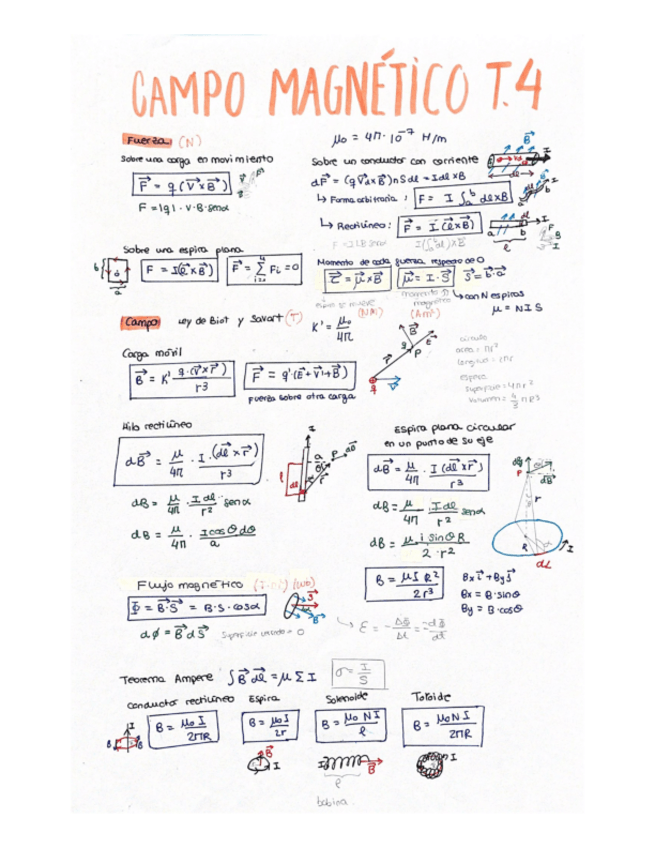 CAMPO MAGNÉTICO T.4
Fuerza (N)
μ₀ = 4π·10⁻⁷ H/m
Sobre una carga en movimiento
F⃗ = q(V⃗×B⃗)
F = |q|·V·B·senα
Sobre un conductor con corriente
dF⃗ = (qV⃗d×B⃗)nSdl = Idl×B
↳ Forma arbitraria : F = I∫ₐᵇ dl×B
↳ Rectilíneo: F⃗ = I(l⃗×B⃗)
Sobre una espira plana
F = I(l⃗×B⃗)
F⃗ = Σ Fi = 0
Momento de cada fuerza respecto de O
τ⃗ = μ⃗×B⃗
μ⃗ = I·S⃗
S⃗ = b⃗·a⃗
momento
magnético
(Nm)
(Am²)
↳ con N espiras
μ = NIS
Campo Ley de Biot y Savart (T)
K' = μ₀/4π
Carga móvil
B⃗ = K' q·(V⃗×r⃗)/r³
F⃗ = q'(E⃗+V⃗'×B⃗)
Fuerza sobre otra carga
círculo
área = πr²
longitud = 2πr
esfera
superficie = 4πr²
volumen = 4/3 πr³
Hilo rectilíneo
dB⃗ = μ/4π · I·(dl⃗×r⃗)/r³
dB = μ/4π · Idl/r² senα
dB = μ/4π · Icosθdθ/a
Espira plana circular
en un punto de su eje
dB⃗ = μ/4π · I(dl⃗×r⃗)/r³
dB = μ/4π · Idl/r² senα
dB = μ i sinθ R/2·r²
B = μIR²/2r³
Bxi⃗+Byj⃗
Bx = B·sinθ
By = B·cosθ
Flujo magnético
Φ = B⃗·S⃗ = B·S·cosα
dϕ = B⃗dS⃗
ε = -Δϕ/Δt = -dϕ/dt
Teorema Ampere ∫B⃗dl⃗ = μΣI
σ = I/S
Conductor rectilíneo
B = μ₀I/2πR
Espira
B = μ₀I/2r
Solenoide
B = μ₀NI/l
Toroide
B = μ₀NI/2πR
bobina